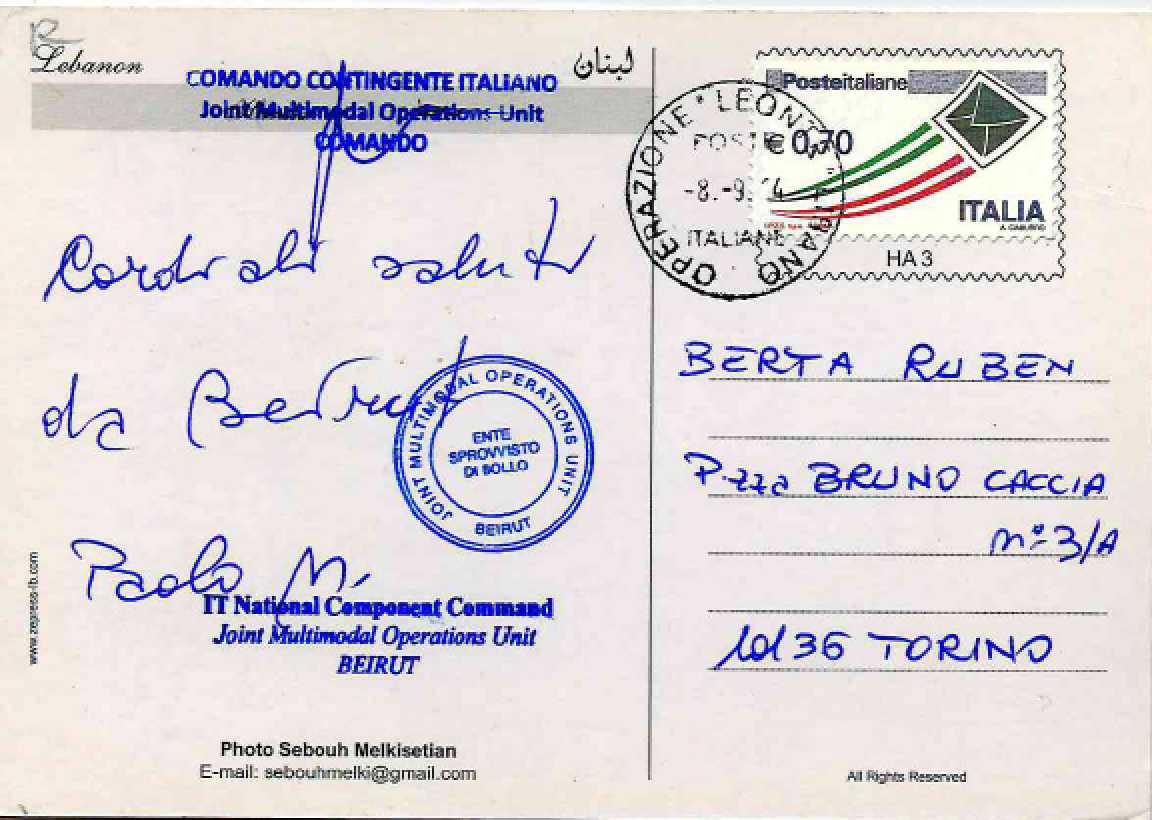 Lebanon
لبنان
COMANDO CONTINGENTE ITALIANO
Joint Multimodal Operations Unit
COMANDO
Cordiali saluti
da Beirut
Paolo M.
JOINT MULTIMODAL OPERATIONS UNIT
ENTE
SPROVVISTO
DI BOLLO
BEIRUT
IT National Component Command
Joint Multimodal Operations Unit
BEIRUT
www.zepress-lb.com
Photo Sebouh Melkisetian
E-mail: sebouhmelki@gmail.com
OPERAZIONE * LEONTE
POSTE
-8.-9.
ITALIANE
LIBANO
Posteitaliane
€ 0,70
ITALIA
HA 3
BERTA RUBEN
P.zza BRUNO CACCIA
n° 3/A
TORINO
All Rights Reserved